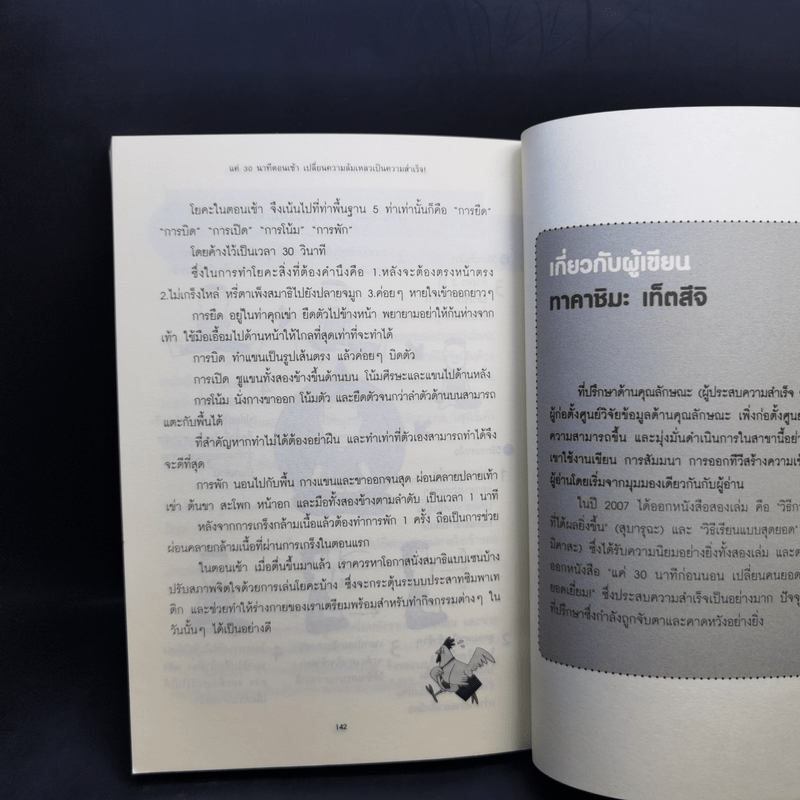 แค่ 30 นาทีตอนเช้า เปลี่ยนความล้มเหลวเป็นความสำเร็จ!
โยคะในตอนเช้า จึงเน้นไปที่ท่าพื้นฐาน 5 ท่าเท่านั้นก็คือ "การยืด"
"การบิด" "การเปิด" "การโน้ม" "การพัก"
โดยค้างไว้เป็นเวลา 30 วินาที
ซึ่งในการทำโยคะสิ่งที่ต้องคำนึงคือ 1.หลังจะต้องตรงหน้าตรง
2.ไม่เกร็งไหล่ หรี่ตาเพ็งสมาธิไปยังปลายจมูก 3.ค่อยๆ หายใจเข้าออกยาวๆ
การยืด อยู่ในท่าคุกเข่า ยืดตัวไปข้างหน้า พยายามอย่าให้ก้นห่างจาก
เท้า ใช้มือเอื้อมไปด้านหน้าให้ไกลที่สุดเท่าที่จะทำได้
การบิด ทำแขนเป็นรูปเส้นตรง แล้วค่อยๆ บิดตัว
การเปิด ชูแขนทั้งสองข้างขึ้นด้านบน โน้มศีรษะและแขนไปด้านหลัง
การโน้ม นั่งกางขาออก โน้มตัว และยืดตัวจนกว่าลำตัวด้านบนสามารถ
แตะกับพื้นได้
ที่สำคัญหากทำไม่ได้ต้องอย่าฝืน และทำเท่าที่ตัวเองสามารถทำได้จึง
จะดีที่สุด
การพัก นอนไปกับพื้น กางแขนและขาออกจนสุด ผ่อนคลายปลายเท้า
เข่า ต้นขา สะโพก หน้าอก และมือทั้งสองข้างตามลำดับ เป็นเวลา 1 นาที
หลังจากการเกร็งกล้ามเนื้อแล้วต้องทำการพัก 1 ครั้ง ถือเป็นการช่วย
ผ่อนคลายกล้ามเนื้อที่ผ่านการเกร็งในตอนแรก
ในตอนเช้า เมื่อตื่นขึ้นมาแล้ว เราควรหาโอกาสนั่งสมาธิแบบเซนบ้าง
ปรับสภาพจิตใจด้วยการเล่นโยคะบ้าง ซึ่งจะกระตุ้นระบบประสาทซิมพาเท
ติก และช่วยทำให้ร่างกายของเราเตรียมพร้อมสำหรับทำกิจกรรมต่างๆ ใน
วันนั้นๆ ได้เป็นอย่างดี
142
เกี่ยวกับผู้เขียน
ทาคาชิมะ เท็ตสึจิ
ที่ปรึกษาด้านคุณลักษณะ (ผู้ประสบความสำเร็จ
ผู้ก่อตั้งศูนย์วิจัยข้อมูลด้านคุณลักษณะ เพิ่งก่อตั้งศูนย์
ความสามารถขึ้น และมุ่งมั่นดำเนินการในสาขานี้อย่า
เขาใช้งานเขียน การสัมมนา การออกทีวีสร้างความเข้
ผู้อ่านโดยเริ่มจากมุมมองเดียวกันกับผู้อ่าน
ในปี 2007 ได้ออกหนังสือสองเล่ม คือ "วิธีก
ที่ได้ผลยิ่งขึ้น" (สุบารุฉะ) และ "วิธีเรียนแบบสุดยอด"
มิคาสะ) ซึ่งได้รับความนิยมอย่างยิ่งทั้งสองเล่ม และต
ออกหนังสือ "แค่ 30 นาทีก่อนนอน เปลี่ยนคนยอด
ยอดเยี่ยม!" ซึ่งประสบความสำเร็จเป็นอย่างมาก ปัจจุ
ที่ปรึกษาซึ่งกำลังถูกจับตาและคาดหวังอย่างยิ่ง